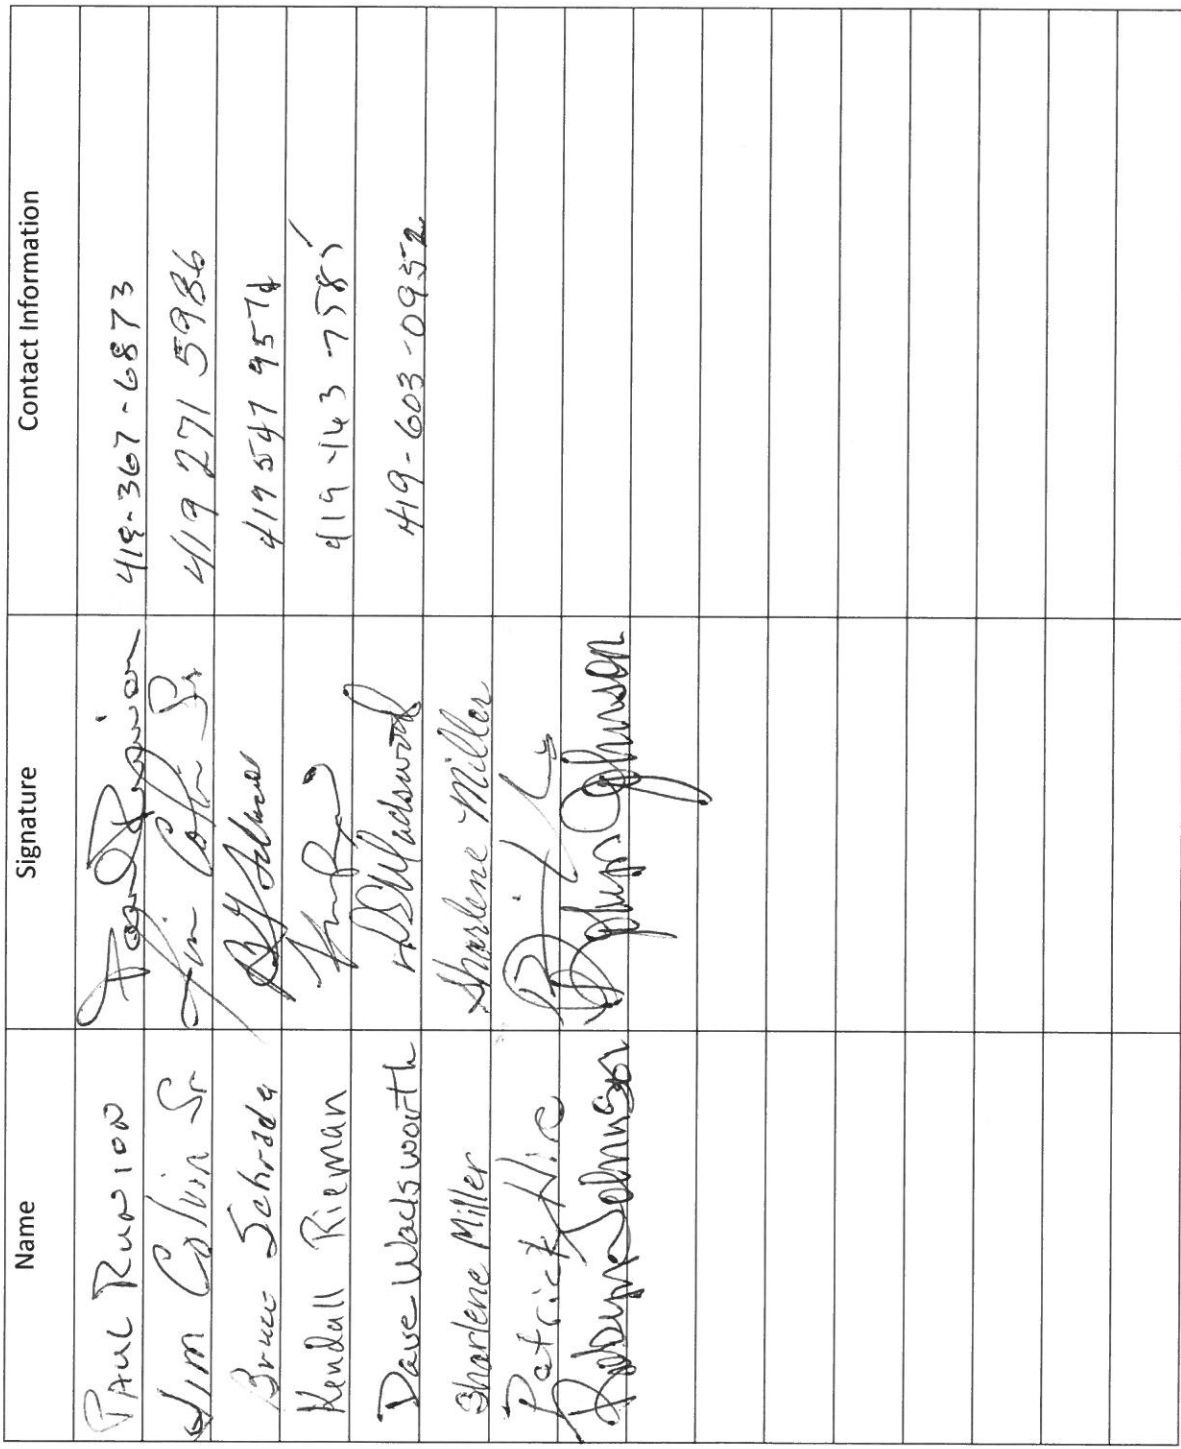 Name Signature Contact Information
Paul Runion Paul Runion 419-367-6873
Jim Colvin Sr Jim Colvin Sr 419 271 5986
Bruce Schrade 419 547 9574
Kendall Rieman 419 463 7585
Dave Wadsworth DSWadsworth 419-603-0952
Sharlene Miller Sharlene Miller
Patrick Hire
Robyn Johnson Robyn Johnson